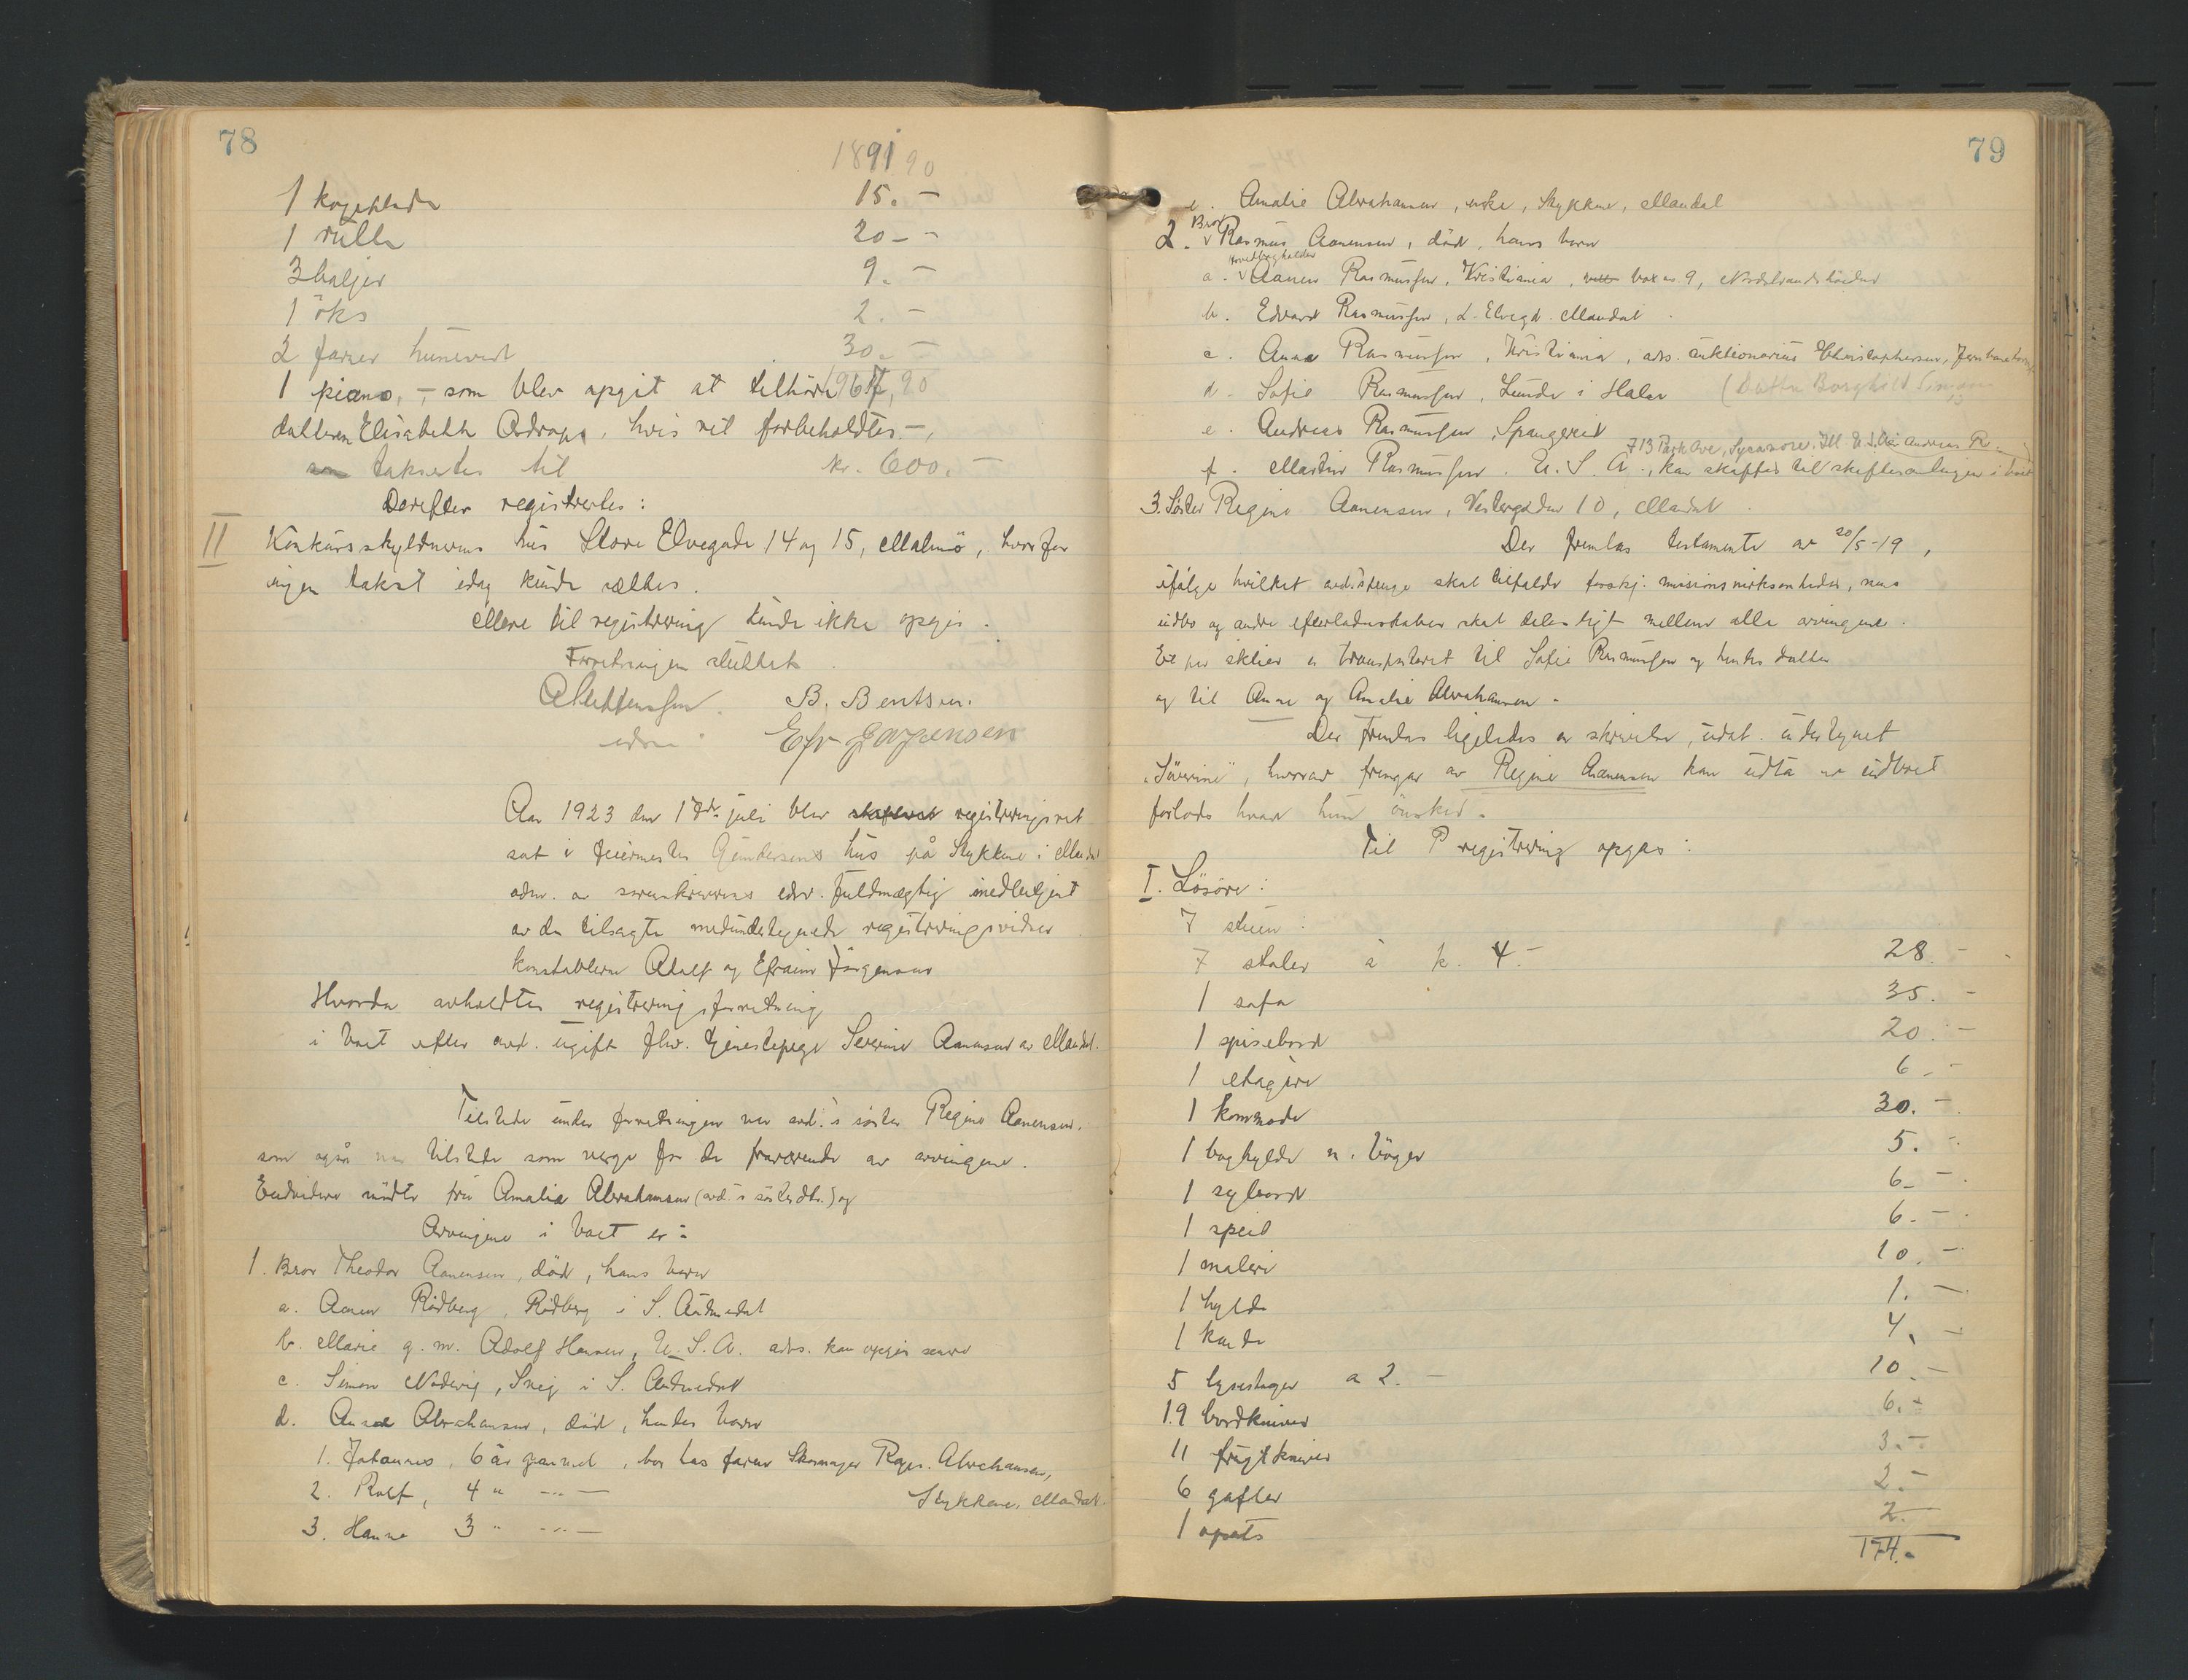 78
1891 90
1 kogeplade 15.–
1 rulle 20.–
3 baljer 9.–
1 öks 2.–
2 farier hunevert 30.–
1967,90
1 piano, – som blev opgit at tilhöre
datteren Elisabeth, hvis ret forbeholdtes –,
taksertes til kr. 600.–
Derefter registrertes:
II Konkursskyldnerens hus Store Elvegade 14 og 15, Malmö, hvorfor
ingen takst idag kunde sættes.
Mere til registrering kunde ikke opgis.
Forretningen sluttet.
B. Bentsen.
edsv. Efr Jørgensen
Aar 1923 den 17de juli blev skifteret registreringsret
sat i feiermester Gundersens hus på Stykkene i Mandal
adm. av sorenskriverens edsv. fuldmægtig med
av de tilsagte medundertegnede registreringsvidner
konstablerne Adolf og Efraim Jörgensen
Hvorda avholdtes registreringsforretning
i boet efter avd. ugift fhv. tjenestepige Severine Aanensen av Mandal.
Tilstede under forretningen var avd.'s söster Regine Aanensen,
som også var tilstede som verge for de fraværende av arvingene.
Endvidere mödte fru Amalie Abrahamsen (avd.'s sösterdtr.) og
Arvingene i boet er:
1. Bror Theodor Aanensen, död, hans barn
a. Aanen Rödberg, Rödberg i S. Audnedal
b. Marie g. m. Adolf Hansen, U.S.A. adrs. kan opgis senere
c. Simon Nödevig, Sveg i S. Audnedal
d. Anna Abrahamsen, död, hendes barn
1. Johannes, 6 år gammel, bor hos faren Skomager Abrahamsen,
2. Rolf, 4 " –"– Stykkene, Mandal.
3. Hanna 3 " –"–
79
e. Amalie Abrahamsen, enke, Stykkene, Mandal
2. Bror Rasmus Aanensen, död, hans barn
a. hovedbogholder Aanen Rasmussen, Kristiania, box no. 9, Nordstrandshöiden
b. Edvard Rasmussen, St. Elvegd. Mandal.
c. Anna Rasmussen, Kristiania, adrs. auktionarius Christophersen,
d. Sofie Rasmussen, Lunde i Halse (Datter Borghild
e. Andreas Rasmussen, Spangereid
713 Park Ave, Sycamore, Ill. U.S.A. Andreas R.
f. Martin Rasmussen. U.S.A., kan skaffes til skiftesamlingen i boet
3. Söster Regine Aanensen, Vestergaden 10, Mandal.
Der fremlas testamente av 20/5-19,
ifölge hvilket avd.s penge skal tilfalde forskj. missionsvirksomheder, mens
indbo og andre efterladenskaber skal deles ligt mellem alle arvingene.
Et par aktier er transporteret til Sofie Rasmussen og hendes datter
og til Anna og Amalie Abrahamsen.
Der fremlas ligeledes en skrivelse, udat. undertegnet
„Söverine", hvorav fremgår at Regine Aanensen kan udta av indboet
forlods hvad hun önsker.
Til registrering opgas:
I. Lösöre:
7 stuen:
7 stoler à k. 4.– 28.–
1 sofa 35.–
1 spisebord 20.–
1 etagère 6.–
1 kommode 30.–
1 boghylde m. böger 5.–
1 sybord 6.–
1 speil 6.–
1 maleri 10.–
1 hylde 1.–
1 kande 4.–
5 lysestager a 2.– 10.–
19 bordkniver 6.–
11 frugtkniver 3.–
6 gafler 2.–
1 opsats 2.–
174.–